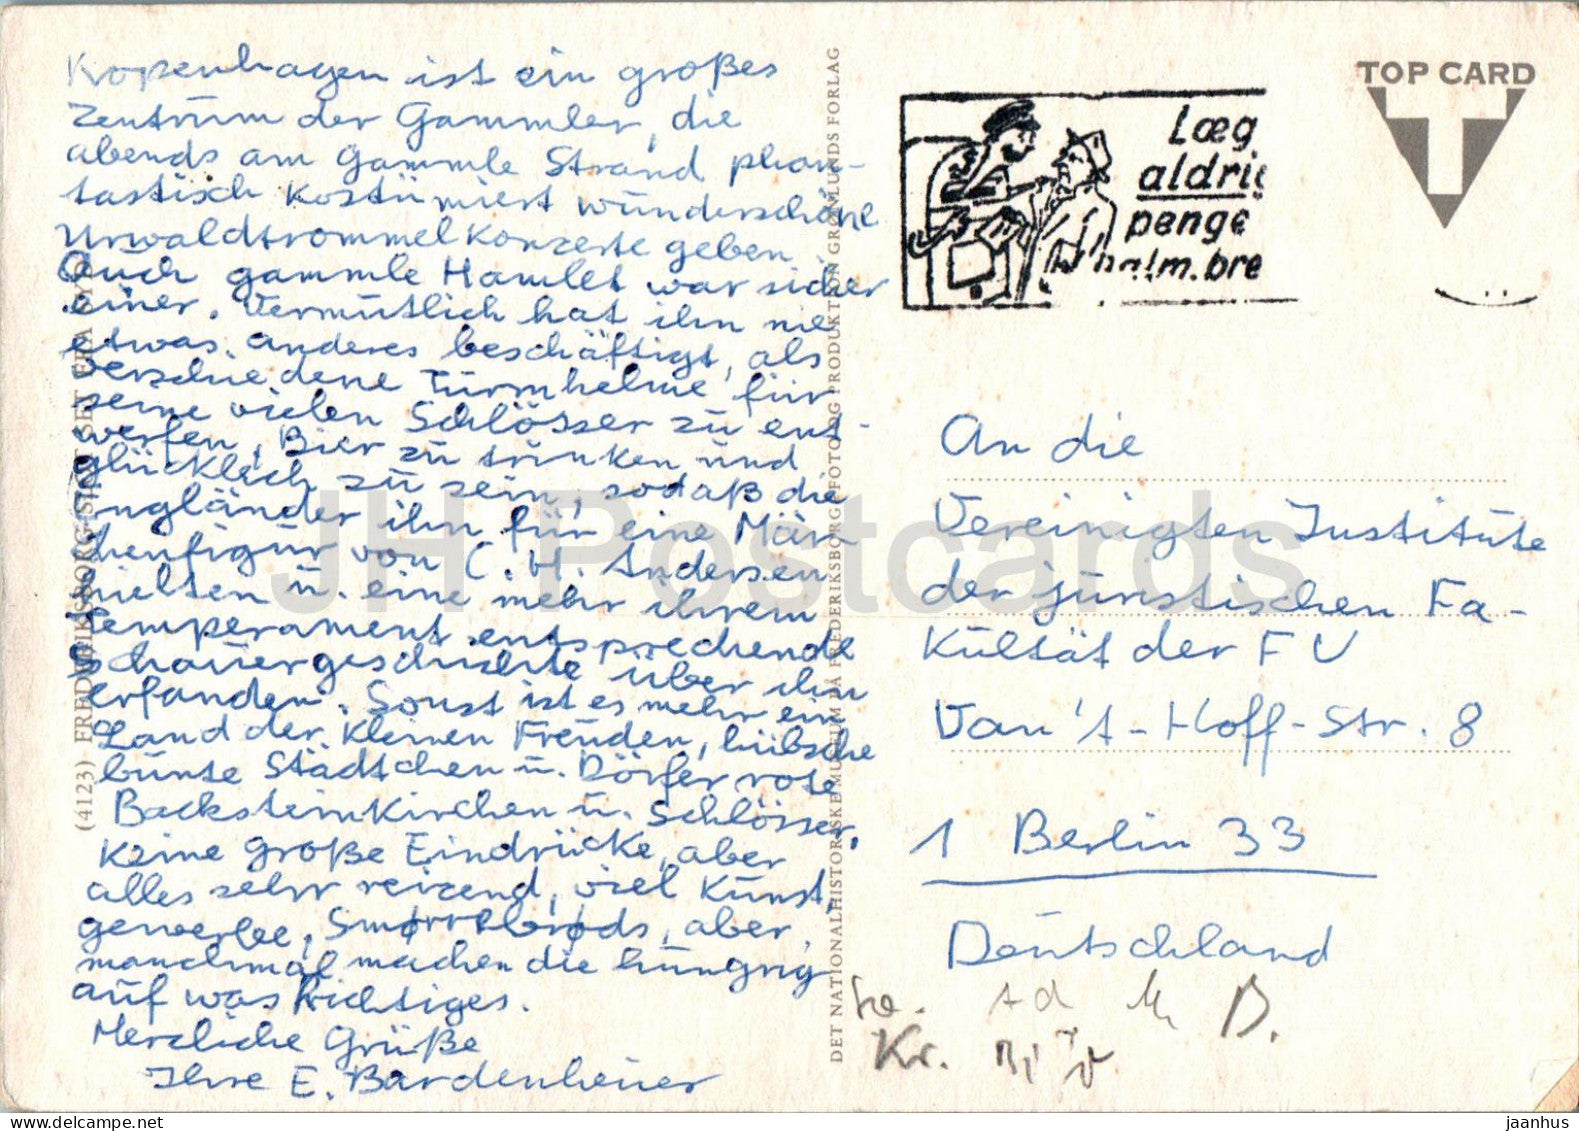 Kopenhagen ist ein großes
Zentrum der Gammler, die
abends am Gammle Strand phan-
tastisch kostümiert wunderschöne
Urwaldtrommelkonzerte geben.
Auch gammle Hamlet war sicher
einer. Vermutlich hat ihn nie
etwas anderes beschäftigt, als
verschiedene Turmhelme für
seine vielen Schlösser zu ent-
werfen, Bier zu trinken und
glücklich zu sein, sodaß die
Engländer ihn für eine Mär-
chenfigur von C. H. Andersen
hielten u. eine mehr ihrem
Temperament entsprechende
Schauergeschichte über ihn
erfanden. Sonst ist es mehr ein
Land der kleinen Freuden, hübsche
bunte Städtchen u. Dörfer rote
Backsteinkirchen u. Schlösser.
Keine große Eindrücke, aber
alles sehr reizend, viel Kunst,
gewerbe, Smørrebrøds, aber,
manchmal machen die hungrig
auf was Richtiges.
Herzliche Grüße
Ihre E. Bardenheuer
(4123) FREDERIKSBORG SLOT SET FRA SYD
DET NATIONALHISTORISKE MUSEUM PÅ FREDERIKSBORG FOTO OG PRODUKTION GRØNLUNDS FORLAG
Læg
aldri
penge
alm. bre
TOP CARD
T
An die
Vereinigten Institute
der juristischen Fa-
kultät der FU
Van 't-Hoff-Str. 8
1 Berlin 33
Deutschland
Kr.
JH Postcards
www.delcampe.net
jaanhus